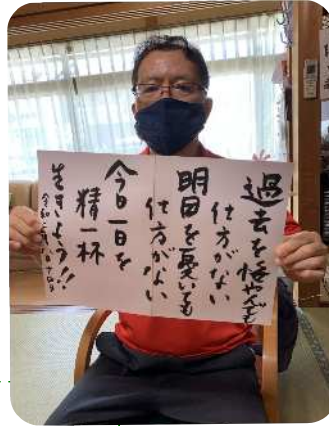 過去を悔やんでも
仕方がない
明日を憂いても
仕方がない
今日一日を
精一杯
生きよう!!